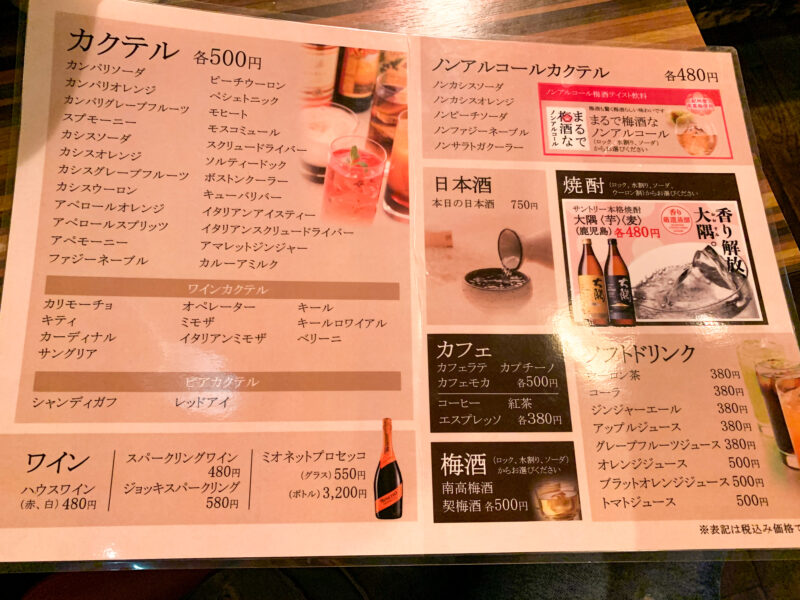 カクテル 各500円
カンパリソーダ
カンパリオレンジ
カンパリグレープフルーツ
スプモーニー
カシスソーダ
カシスオレンジ
カシスグレープフルーツ
カシスウーロン
アペロールオレンジ
アペロールスプリッツ
アペモーニー
ファジーネーブル
ピーチウーロン
ペシェトニック
モヒート
モスコミュール
スクリュードライバー
ソルティードック
ボストンクーラー
キューバリバー
イタリアンアイスティー
イタリアンスクリュードライバー
アマレットジンジャー
カルーアミルク
ワインカクテル
カリモーチョ
キティ
カーディナル
サングリア
オペレーター
ミモザ
イタリアンミモザ
キール
キールロワイアル
ベリーニ
ビアカクテル
シャンディガフ
レッドアイ
ワイン
ハウスワイン
(赤、白) 480円
スパークリングワイン
480円
ジョッキスパークリング
580円
ミオネットプロセッコ
(グラス) 550円
(ボトル) 3,200円
ノンアルコールカクテル 各480円
ノンカシスソーダ
ノンカシスオレンジ
ノンピーチソーダ
ノンファジーネーブル
ノンサラトガクーラー
ノンアルコール梅酒テイスト飲料
まるで
梅酒な
ノンアルコール
梅酒も驚く梅酒らしい味わいです
まるで梅酒な
ノンアルコール
(ロック、水割り、ソーダ)
からお選びください
日本酒
本日の日本酒 750円
焼酎 (ロック、水割り、ソーダ、
ウーロン割)からお選びください
サントリー本格焼酎
大隅〈芋〉〈麦〉
(鹿児島) 各480円
香り
厳選蒸留
香り解放
大隅
大隅
カフェ
カフェラテ カプチーノ
カフェモカ 各500円
コーヒー 紅茶
エスプレッソ 各380円
梅酒 (ロック、水割り、ソーダ)
からお選びください
南高梅酒
契梅酒 各500円
ソフトドリンク
ウーロン茶 380円
コーラ 380円
ジンジャーエール 380円
アップルジュース 380円
グレープフルーツジュース 380円
オレンジジュース 500円
ブラットオレンジジュース 500円
トマトジュース 500円
※表記は税込み価格で